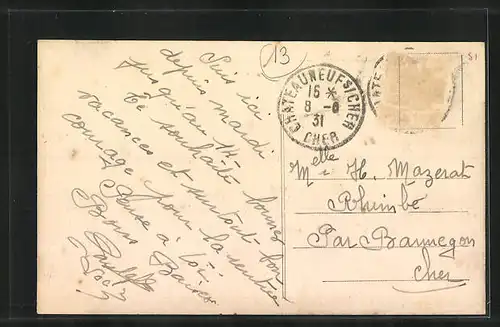 13
CHATEAUNEUF S/CHER
16 *
8 - 8
31
CHER
51
Suis ici
depuis mardi
jusqu'au 14.
Te souhaite bonnes
vacances et surtout bon
courage pour la rentrée
Pense à toi.
Bons Baisers
Melle H. Mazerat
Rhimbé
Par Bannegon
Cher